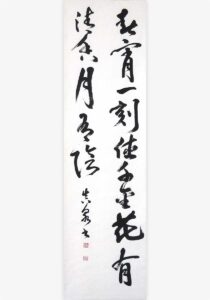 春宵一刻値千金花有
清香月有陰